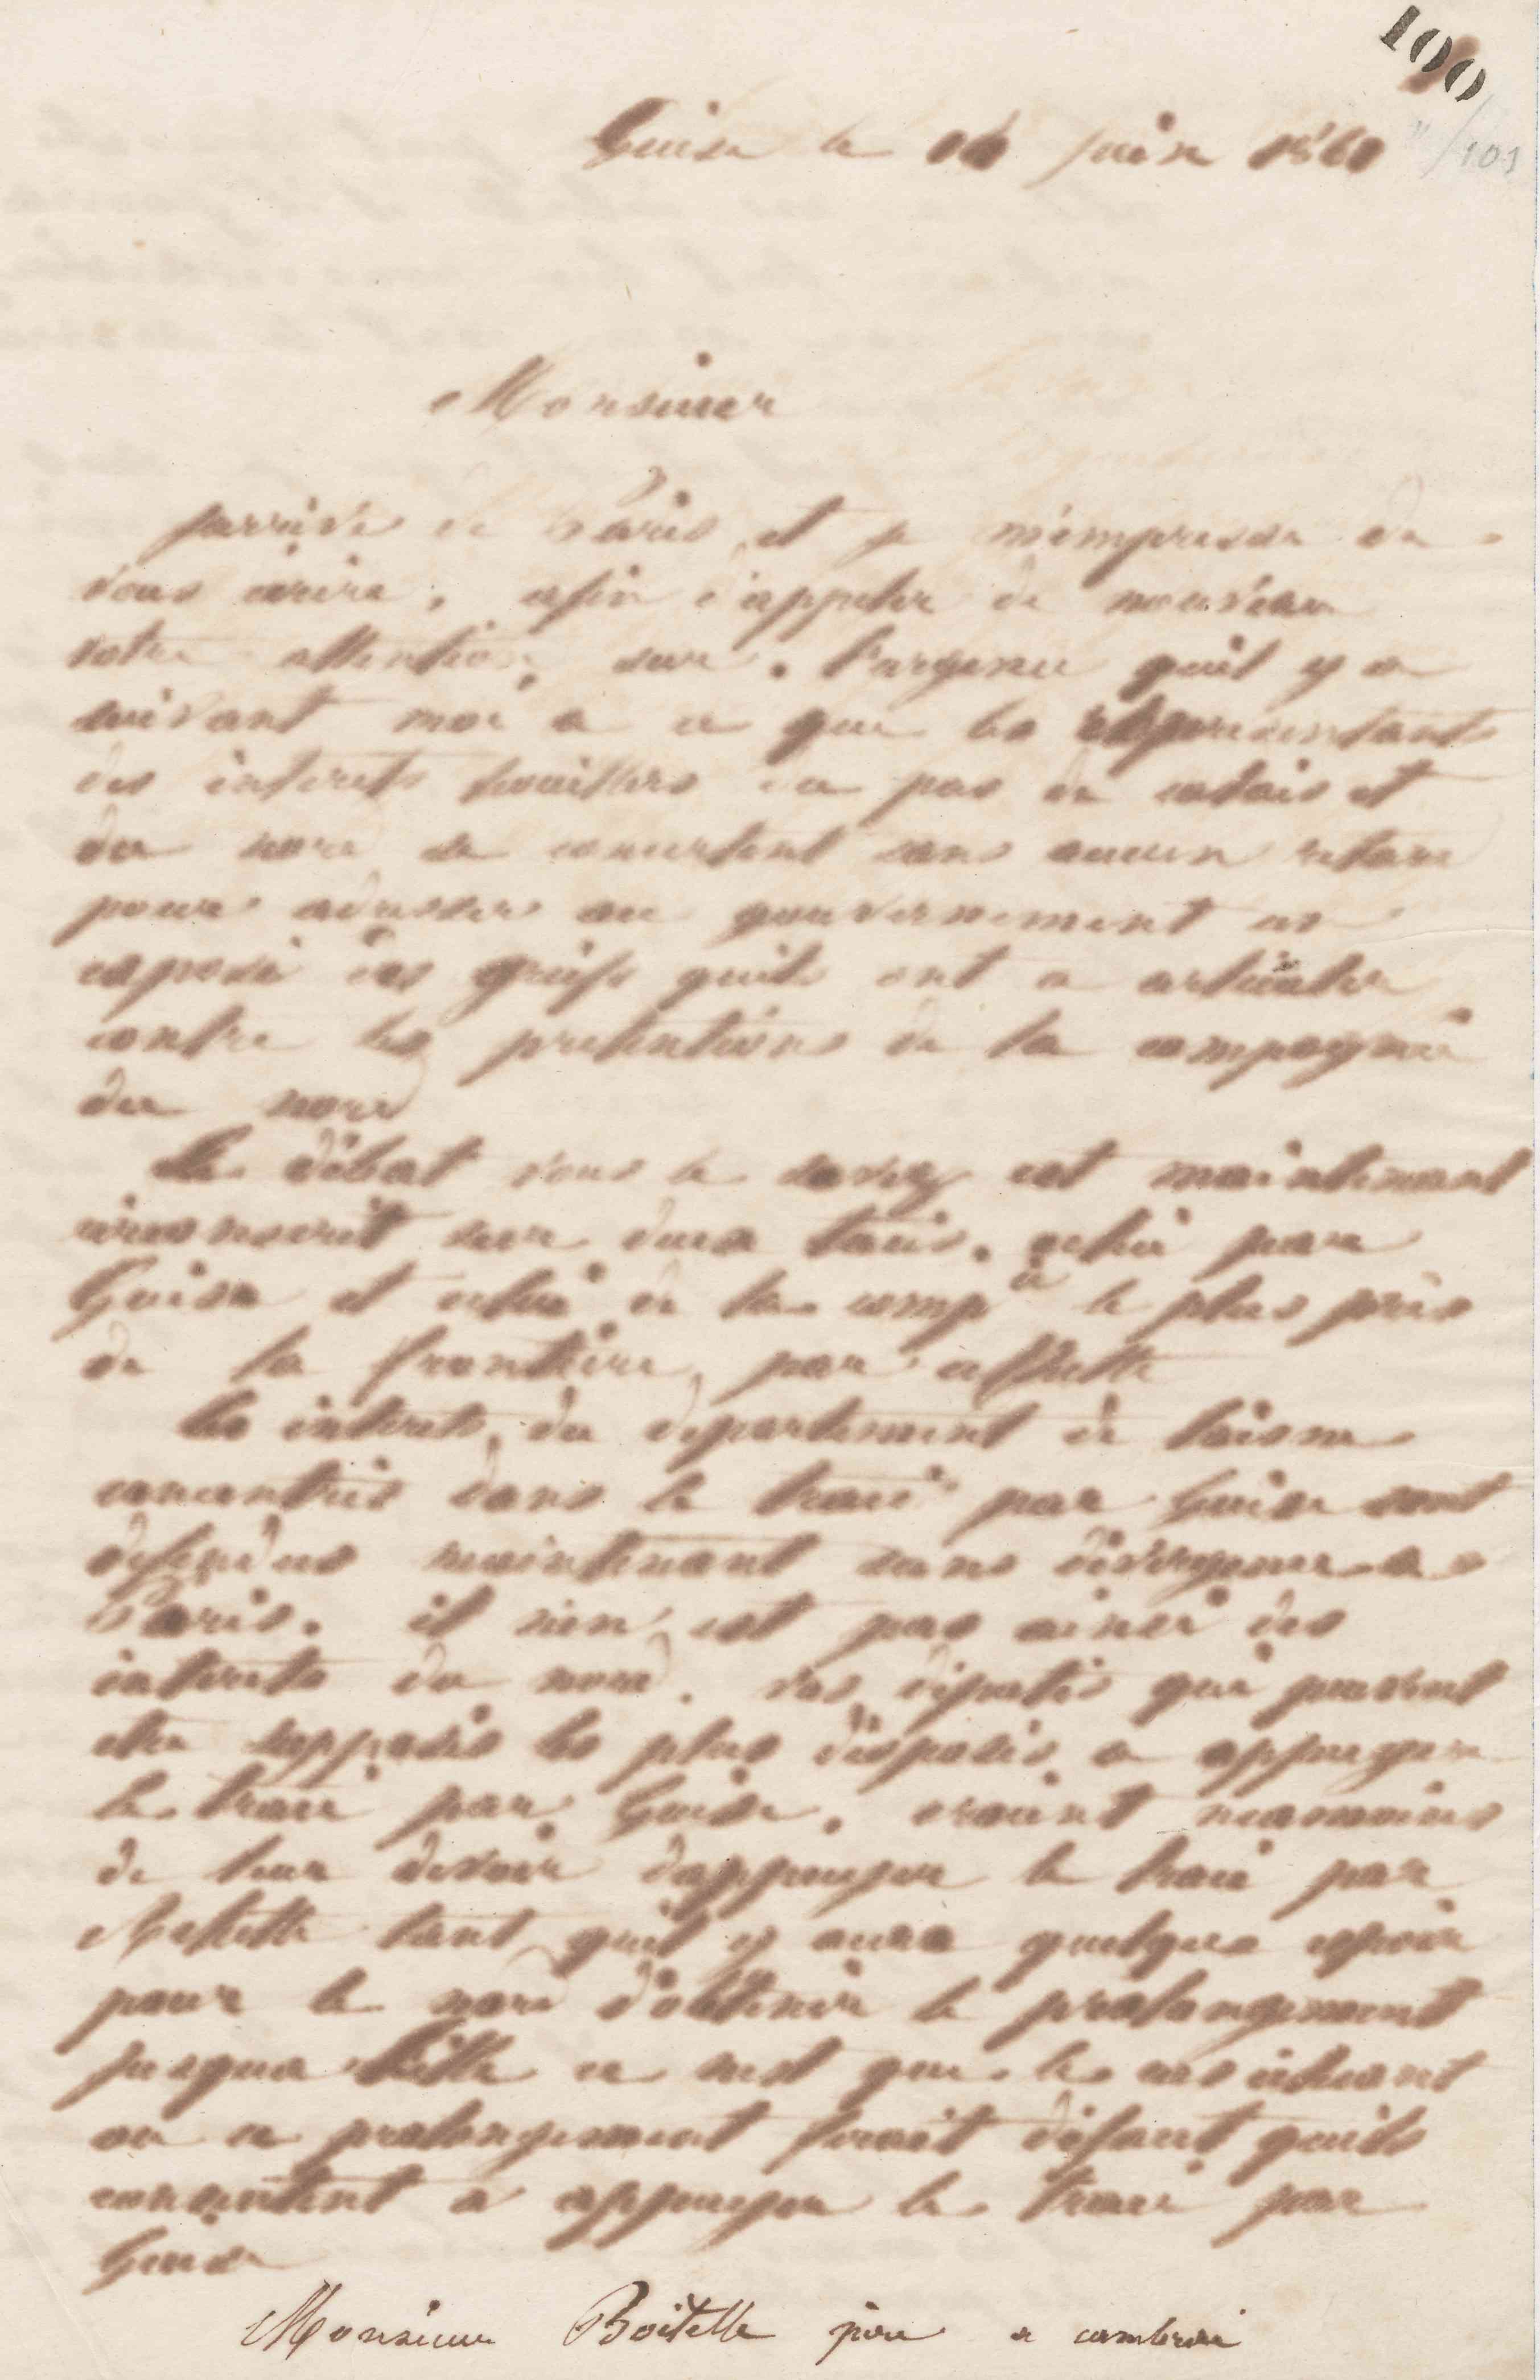 100
/101
Guise le juin
Monsieur
j'arrive de Paris et je m'empresse de
vous écrire, afin d'appeler de nouveau
votre attention, sur l'urgence quil y a
suivant moi a ce que les représentants
des interets houillers du pas de calais et
du nord se concertent sans aucun retard
pour adresser au gouvernement un
exposé des griefs quils ont a articuler
contre les pretentions de la compagnie
du nord
Le débat vous le savez est maintenant
circonscrit sur deux tracés. celui par
Guise et celui de la compie le plus près
de la frontière, par
les interets du departement de laisne
concentrés dans le tracé par Guise sont
defendus maintenant sans divergence a
Paris. il n'en est pas ainsi des
interets du nord. vos députés qui peuvent
etre supposés les plus disposés a appuyer
le tracé par Guise. croient neanmoins
de leur devoir dappuyer le tracé par
tant quil y aura quelque espoir
pour le nord d'obtenir le prolongement
jusqua ce nest que le cas échéant
ou ce prolongement ferait défaut quils
consentent a appuyer le tracé par
Guise
Monsieur Boitelle père a cambrai